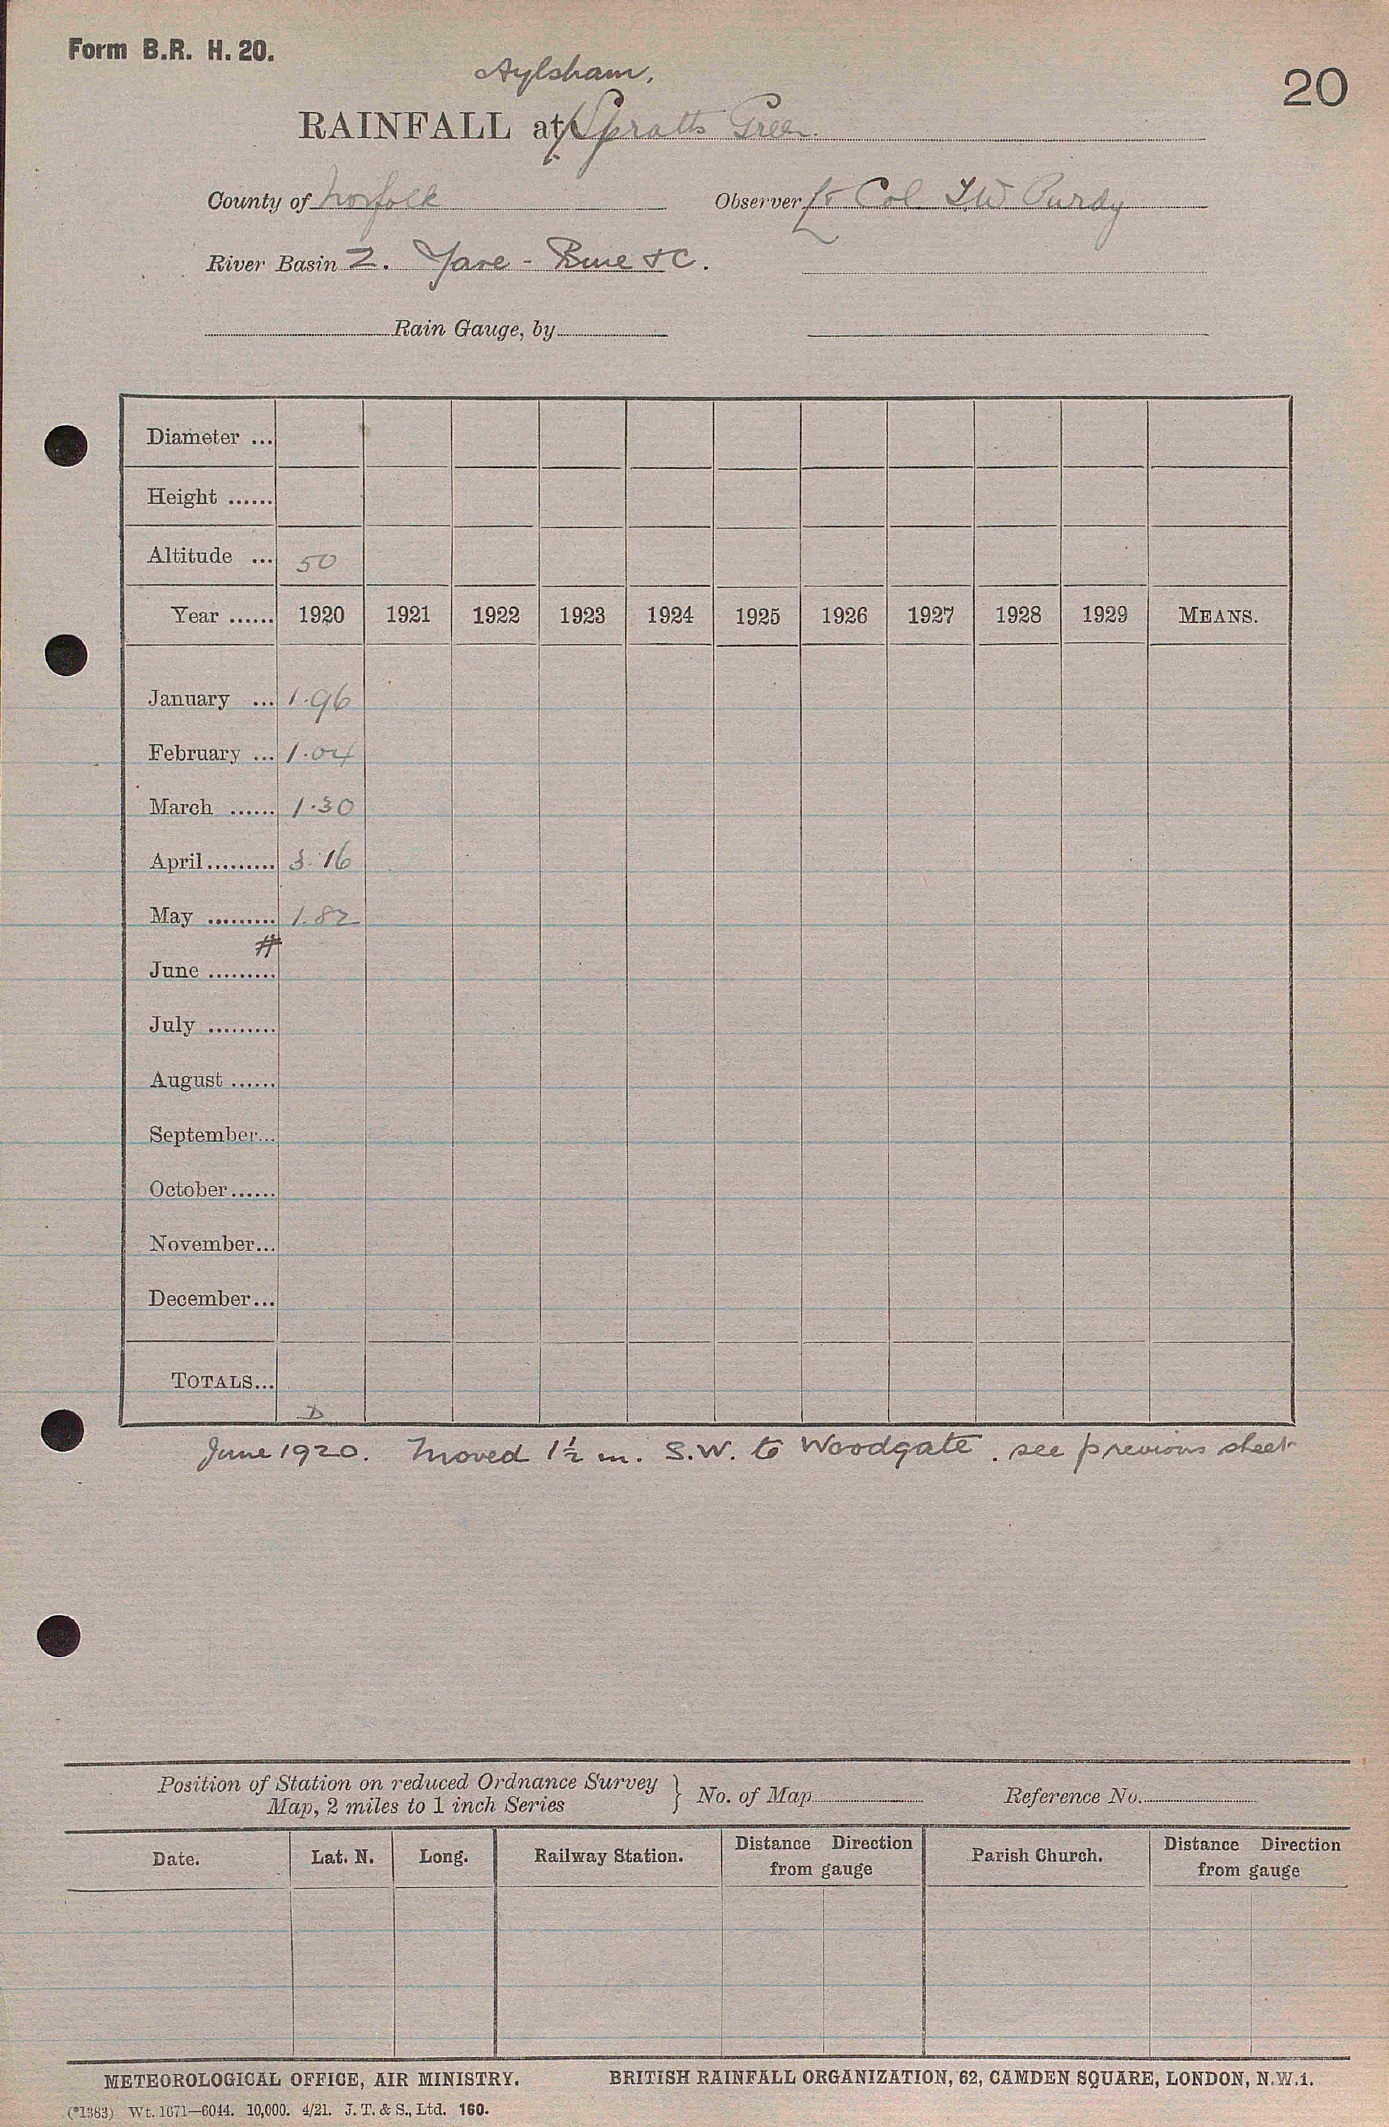 Form B.R. H. 20.
20
Aylsham,
RAINFALL at Spratts Green.
County of Norfolk Observer Lt Col T.W Purdy
River Basin 2. Yare - Bure &C.
Rain Gauge, by
Diameter ...
Height ......
Altitude ... 50
Year ...... 1920 1921 1922 1923 1924 1925 1926 1927 1928 1929 MEANS.
January ... 1.96
February ... 1.04
March ...... 1.30
April......... 3.16
May ......... 1.82
#
June .........
July .........
August ......
September...
October......
November...
December...
TOTALS...
D
June 1920. Moved 1½ m. S.W. to Woodgate. see previous sheet
Position of Station on reduced Ordnance Survey
Map, 2 miles to 1 inch Series } No. of Map Reference No.
Date. Lat. N. Long. Railway Station. Distance Direction from gauge Parish Church. Distance Direction from gauge
METEOROLOGICAL OFFICE, AIR MINISTRY. BRITISH RAINFALL ORGANIZATION, 62, CAMDEN SQUARE, LONDON, N.W.1.
(*1383) Wt. 1671—6044. 10,000. 4/21. J. T. & S., Ltd. 160.